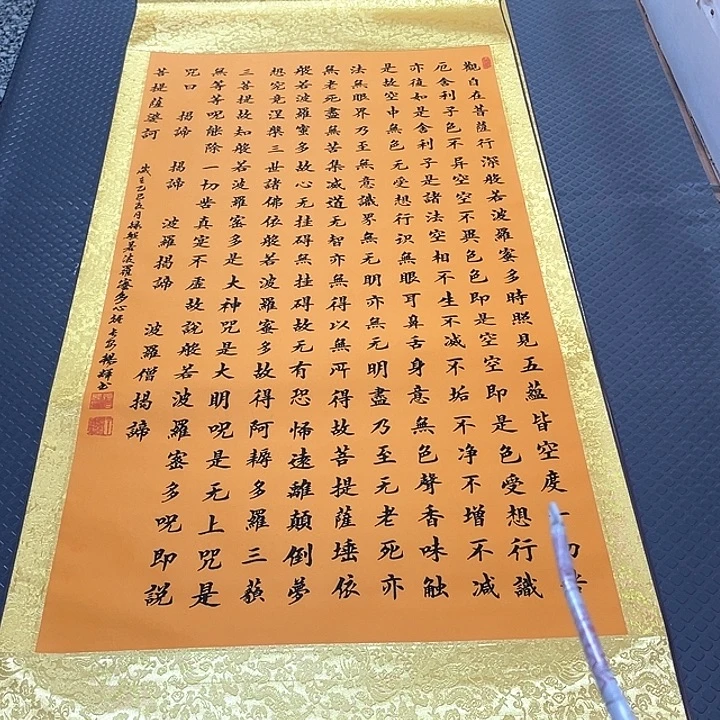 觀自在菩薩行深般若波羅蜜多時照見五蘊皆空度一切苦
厄舍利子色不异空空不異色色即是空空即是色受想行識
亦復如是舍利子是諸法空相不生不减不垢不净不增不减
是故空中無色无受想行识無眼耳鼻舌身意無色聲香味触
法無眼界乃至無意識界無无明亦無无明盡乃至无老死亦
無老死盡無苦集减道无智亦無得以無所得故菩提薩埵依
般若波羅蜜多故心无挂碍無挂碍故无有恐怖遠離顛倒夢
想究竟涅槃三世諸佛依般若波羅蜜多故得阿耨多羅三藐
三菩提故知般若波羅蜜多是大神咒是大明呪是无上咒是
無等等呪能除一切苦真实不虚故說般若波羅蜜多呪即説
咒曰 揭諦 揭諦 波羅揭諦 波羅僧揭諦
菩提薩婆訶
歲在乙巳月録般若波羅蜜多心經楊輝書